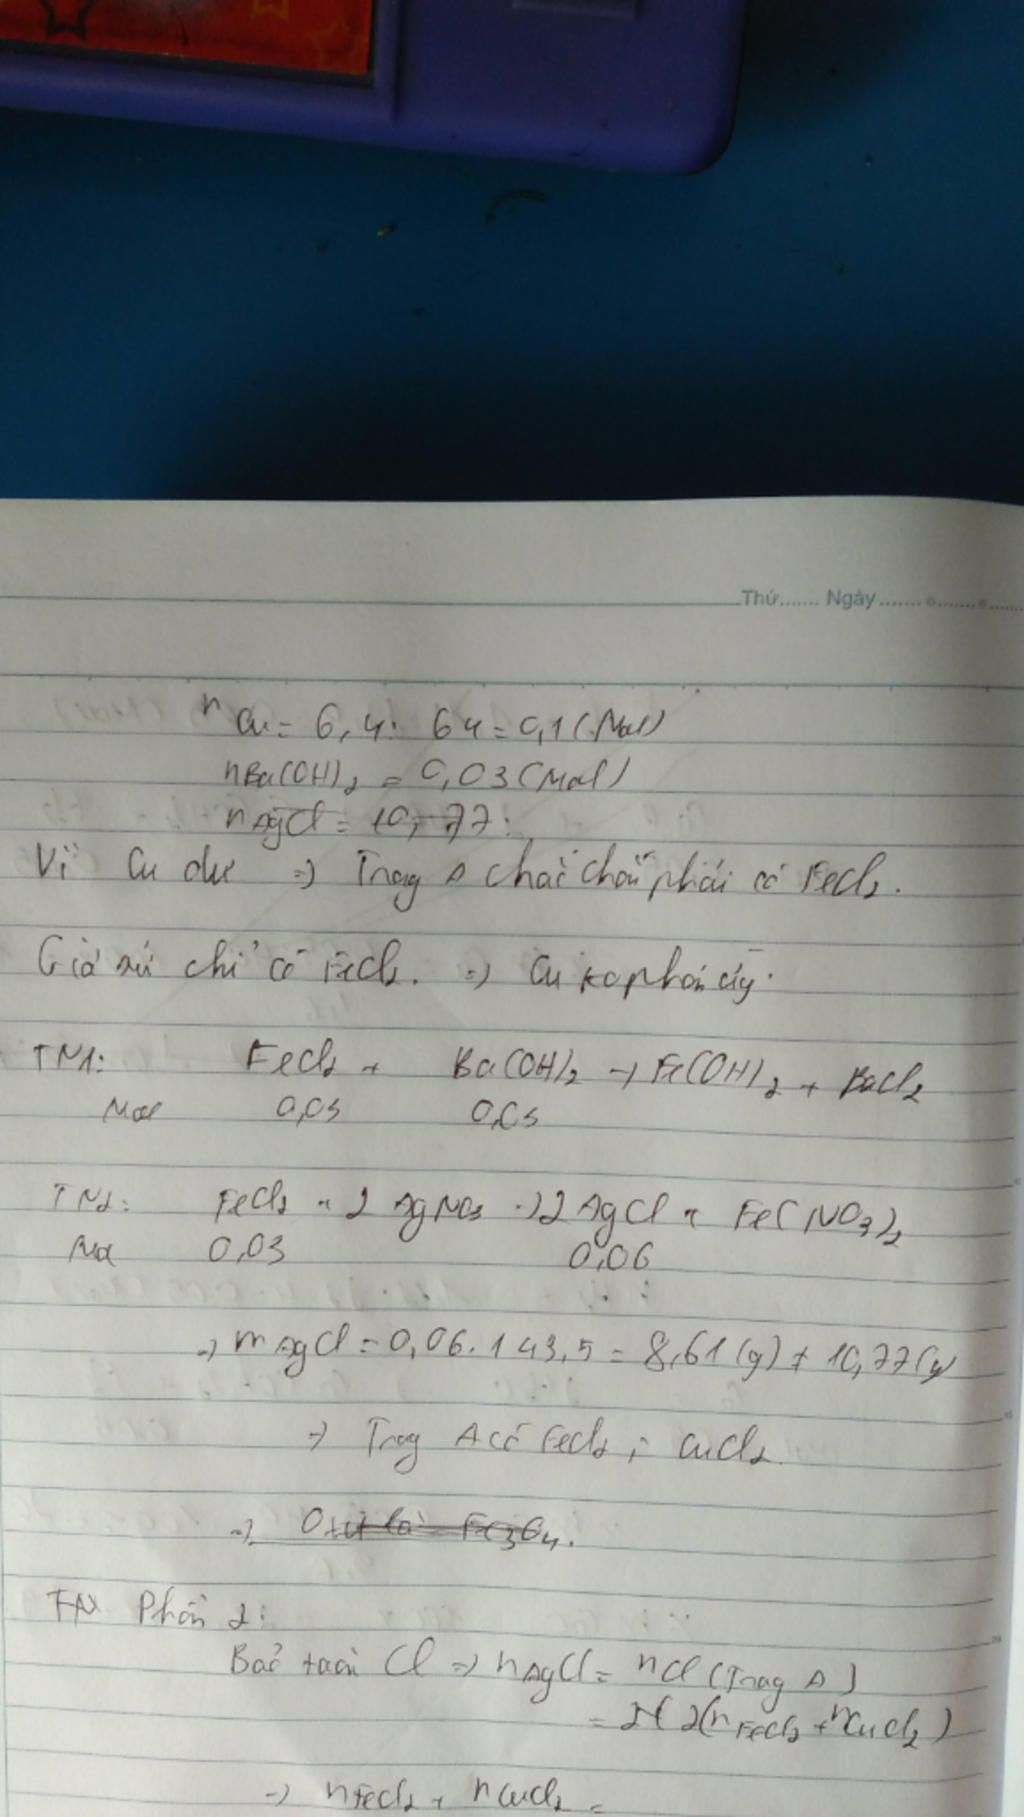 Thứ....... Ngày.......
nCu = 6,4 : 64 = 0,1 (Mol)
nBa(OH)2 = 0,03 (Mol)
nAgCl = 10,77 :
Vì Cu dư => Trong A chắc chắn phải có FeCl2.
Giả sử chỉ có FeCl2. => Cu ko phản ứng.
TN1: FeCl2 + Ba(OH)2 -> Fe(OH)2 + BaCl2
Mol 0,03 0,03
TN2: FeCl2 + 2AgNO3 -> 2AgCl + Fe(NO3)2
Mol 0,03 0,06
-> mAgCl = 0,06.143,5 = 8,61 (g) ≠ 10,77 (g)
=> Trong A có FeCl2 ; CuCl2
=> Fe3O4.
Phần 2:
Bảo toàn Cl => nAgCl = nCl (Trong A)
= 2(nFeCl2 + nCuCl2)
-> nFeCl2 + nCuCl2 =